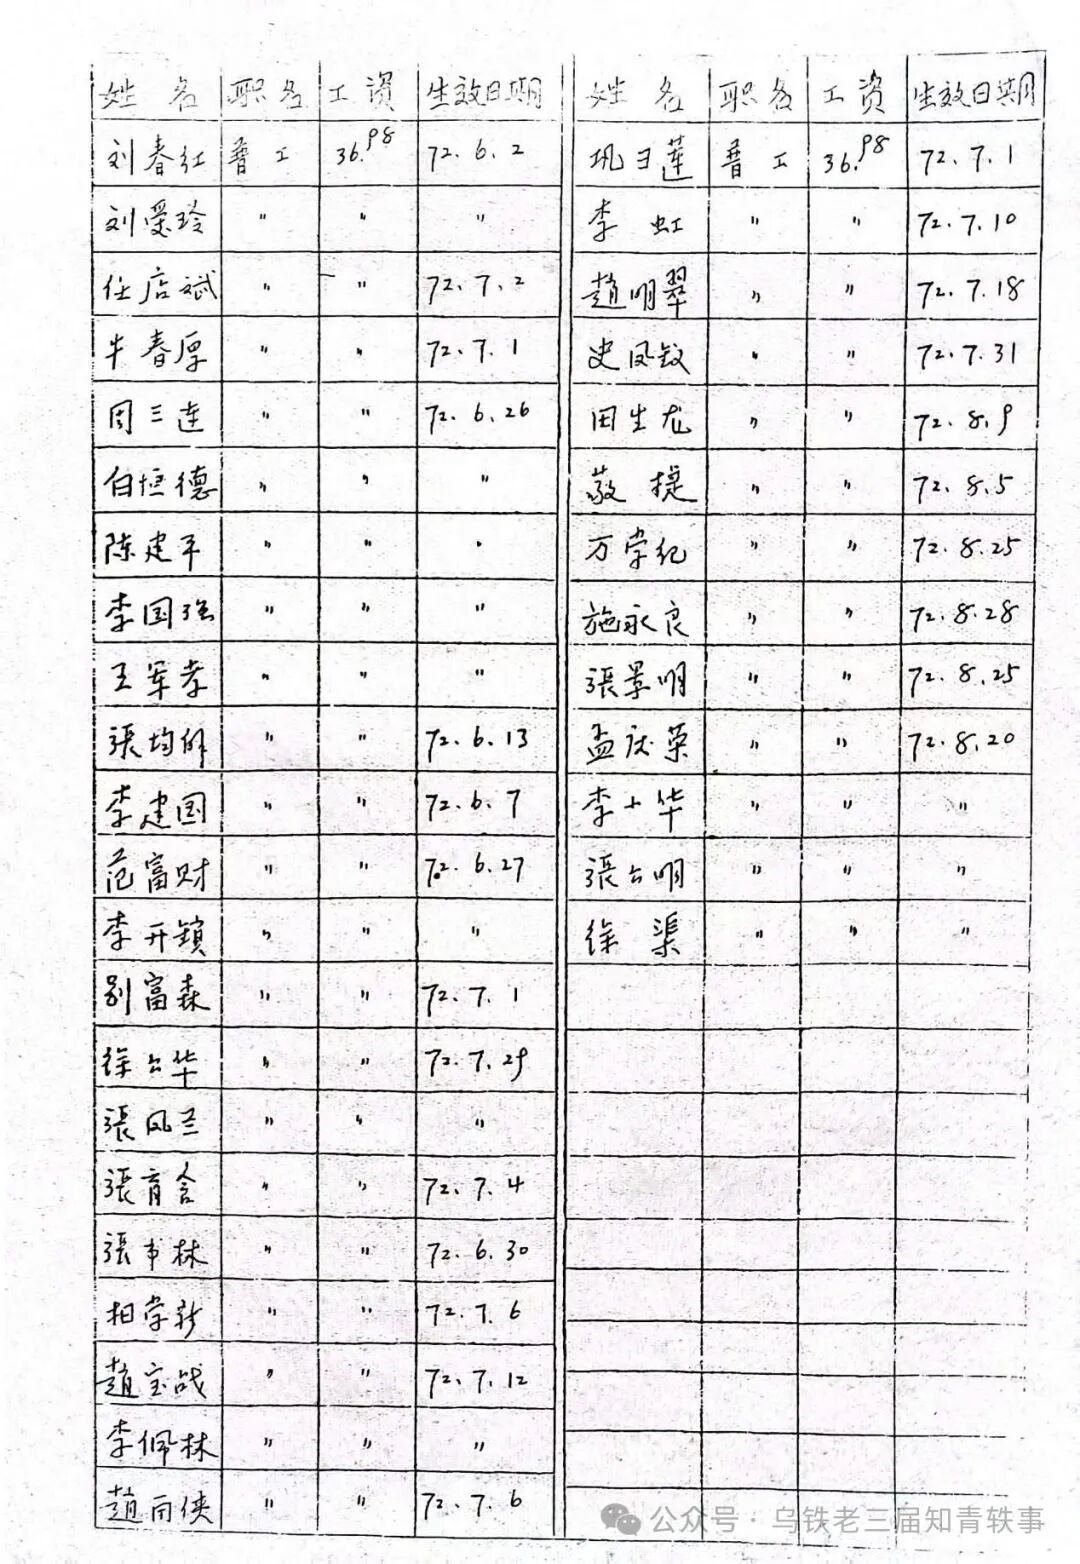 姓名 职名 工资 生效日期
刘春红 普工 36.98 72.6.2
刘爱玲 〃 〃 〃
任店斌 〃 〃 72.7.2
牛春厚 〃 〃 72.7.1
周三连 〃 〃 72.6.26
白恒德 〃 〃 〃
陈建平 〃 〃 〃
李国强 〃 〃 〃
王军孝 〃 〃 〃
張均 〃 〃 72.6.13
李建国 〃 〃 72.6.7
范富财 〃 〃 72.6.27
李开鎖 〃 〃 〃
别富森 〃 〃 72.7.1
徐公华 〃 〃 72.7.29
張凤兰 〃 〃 〃
張育含 〃 〃 72.7.4
張书林 〃 〃 72.6.30
柏学新 〃 〃 72.7.6
趙宝战 〃 〃 72.7.12
李佩林 〃 〃 〃
趙雨侠 〃 〃 72.7.6
姓名 职名 工资 生效日期
巩莲 普工 36.98 72.7.1
李虹 〃 〃 72.7.10
趙明翠 〃 〃 72.7.18
史凤钗 〃 〃 72.7.31
田生龙 〃 〃 72.8.9
敬捷 〃 〃 72.8.5
万学纪 〃 〃 72.8.25
施永良 〃 〃 72.8.28
張景明 〃 〃 72.8.25
孟庆荣 〃 〃 72.8.20
李小华 〃 〃 〃
張公明 〃 〃 〃
徐渠 〃 〃 〃
公众号 · 乌铁老三届知青轶事